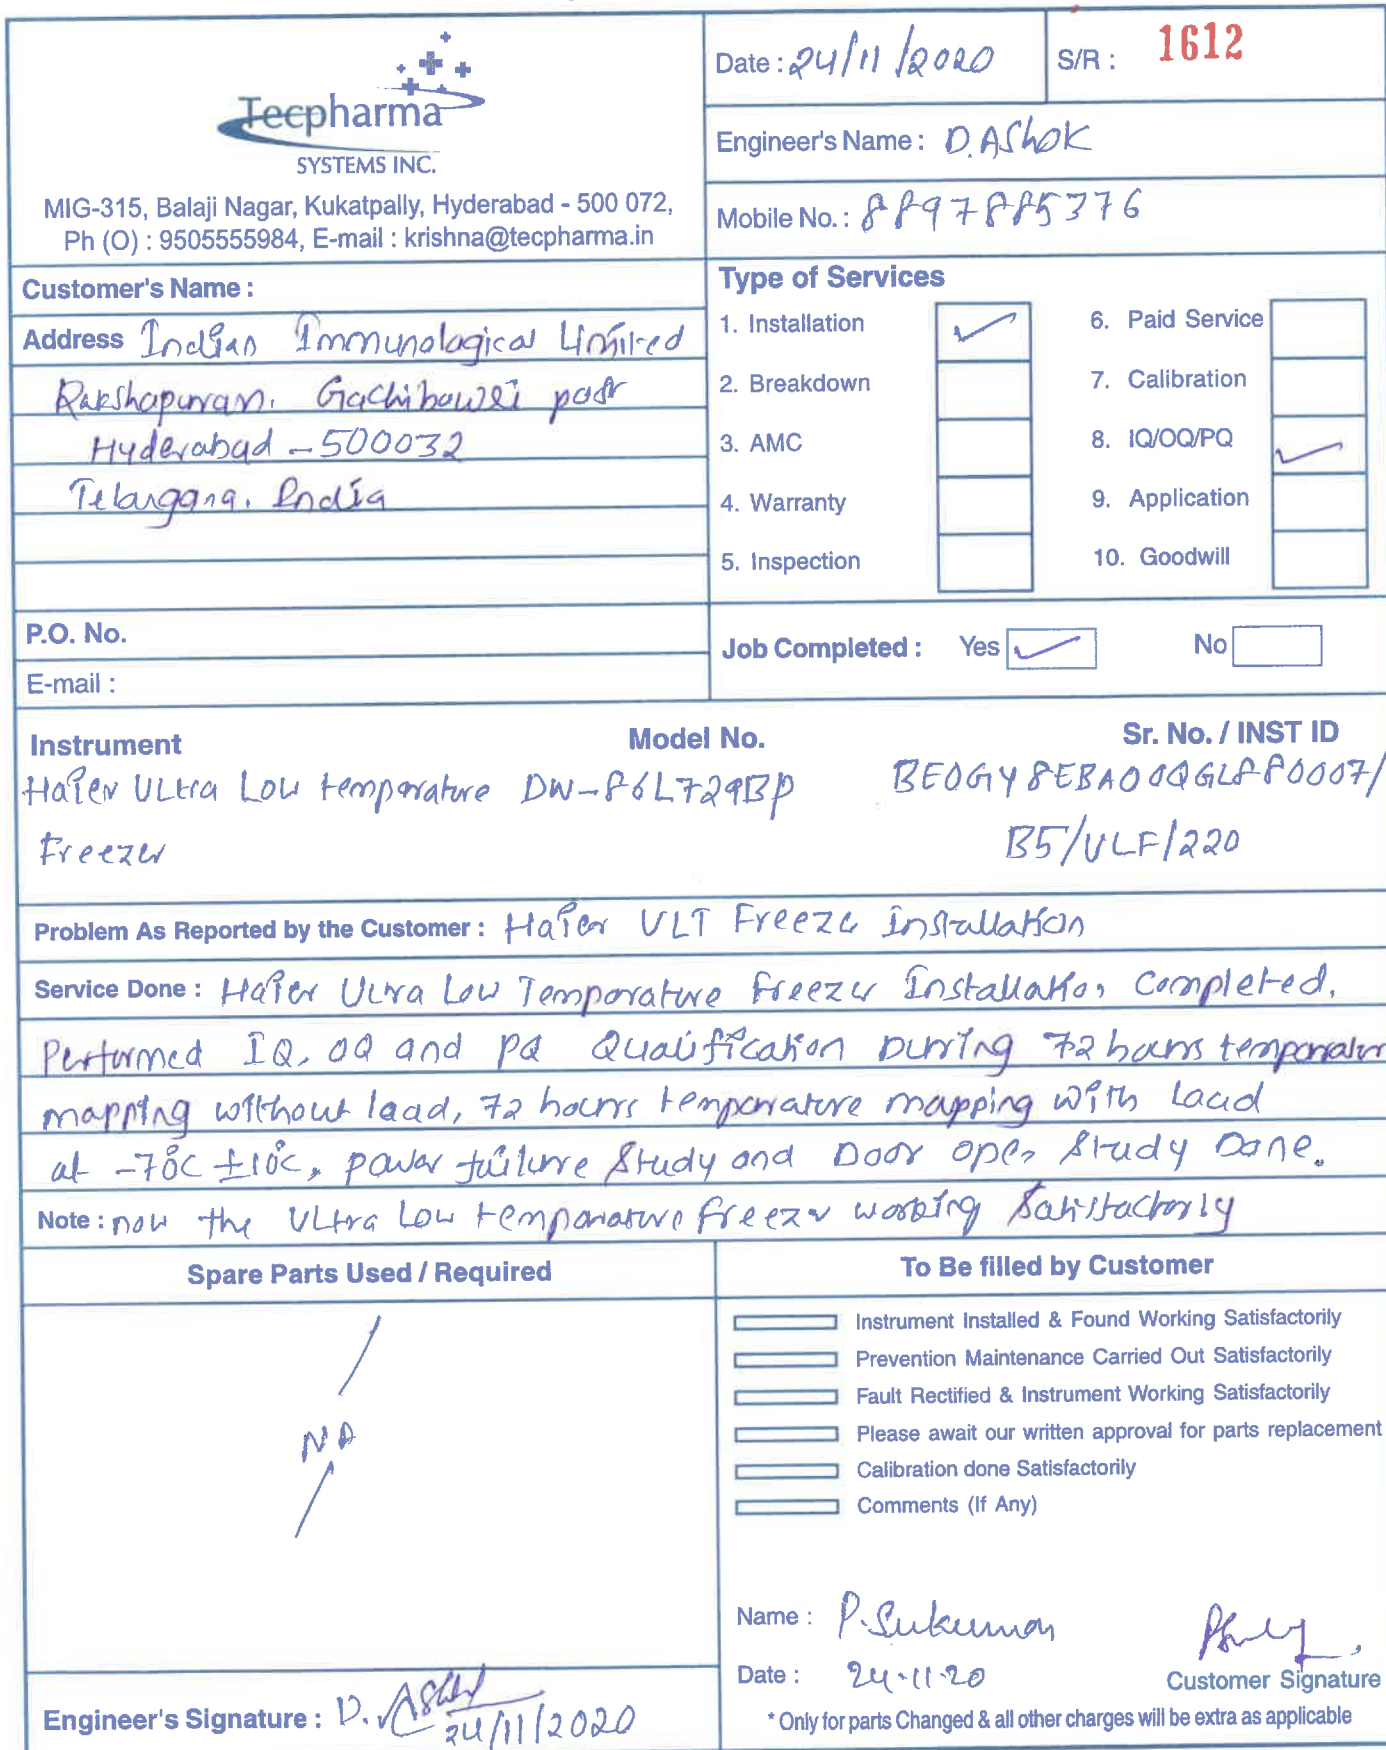 Tecpharma
SYSTEMS INC.
MIG-315, Balaji Nagar, Kukatpally, Hyderabad - 500 072,
Ph (O) : 9505555984, E-mail : krishna@tecpharma.in
Date : 24/11/2020 S/R : 1612
Engineer's Name : D. Ashok
Mobile No. : 8897885376
Customer's Name :
Address Indian Immunological Limited
Rakshapuram. Gachibowli post
Hyderabad - 500032
Telangana. India
P.O. No.
E-mail :
Type of Services
1. Installation ✓ 6. Paid Service
2. Breakdown 7. Calibration
3. AMC 8. IQ/OQ/PQ ✓
4. Warranty 9. Application
5. Inspection 10. Goodwill
Job Completed : Yes ✓ No
Instrument Model No. Sr. No. / INST ID
Haier ULtra Low temperature DW-86L729BP BE0GY8EBA00QGL880007/
Freezer B5/ULF/220
Problem As Reported by the Customer : Haier ULT Freeze Installation
Service Done : Haier Ultra Low Temperature Freezer Installation Completed.
Performed IQ, OQ and PQ Qualification During 72 hours temperature
mapping without load, 72 hours temperature mapping with Load
at -70°C ±10°C, power failure study and Door open study Done.
Note : now the ULtra Low temperature freezer working Satisfactorly
Spare Parts Used / Required
NA
Engineer's Signature : D. Ashok
24/11/2020
To Be filled by Customer
Instrument Installed & Found Working Satisfactorily
Prevention Maintenance Carried Out Satisfactorily
Fault Rectified & Instrument Working Satisfactorily
Please await our written approval for parts replacement
Calibration done Satisfactorily
Comments (If Any)
Name : P. Sukumar
Date : 24-11-20 Customer Signature
* Only for parts Changed & all other charges will be extra as applicable